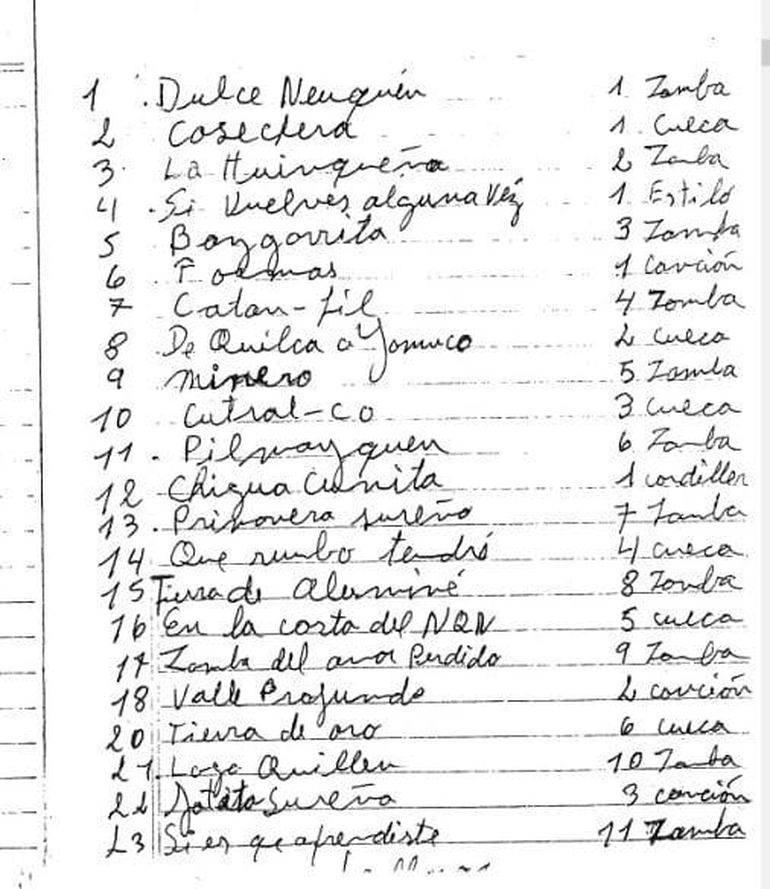 1 . Dulce Neuquén 1 Zamba
2 Cosechera 1 Cueca
3 La Huinqueña 2 Zamba
4 . Si Vuelves alguna vez 1 Estilo
5 Baygorrita 3 Zamba
6 . 1 Canción
7 Catan-Lil 4 Zamba
8 De Quilca a Yamuco 2 Cueca
9 Minero 5 Zamba
10 Cutral-co 3 Cueca
11 . Pilmayquen 6 Zamba
12 Chigua Cunita 1 cordiller
13 . Primavera sureña 7 Zamba
14 Que rumbo tendrá 4 cueca
15 Tierra de Aluminé 8 Zamba
16 En la costa del NQN 5 cueca
17 Zamba del amor Perdido 9 Zamba
18 Valle Profundo 2 canción
20 Tierra de oro 6 cueca
21 . Lago Quillen 10 Zamba
22 Sureña 3 canción
23 Si es que aprendiste 11 Zamba